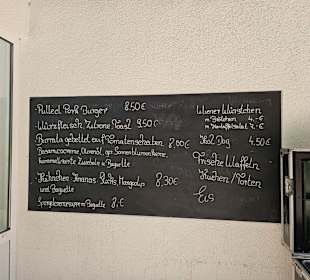 Pulled Pork Burger 8.50€
Würzfleisch Zitrone Toast 9.50€
Burrata gebettet auf Tomatenscheiben 8,00€
Balsamcocreme, Olivenöl, Sonnenblumenkerne,
karamellisierte Zwiebeln u. Baguette
Hühnchen Ananas Mango
und Baguette 8,30€
Baguette 8,€
Wiener Würstchen
m Brötchen 4.-€
m Kartoffelsalat 7.-€
Hot Dog 4.50€
Frische Waffeln
Kuchen/Torten
Eis